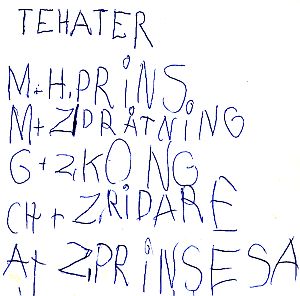 TEHATER
M+H,PRiNS.
M+Z,DRÅTNiNG
G+Z,KONG
CH+Z,RIDARE
A+Z,PRiNSESA